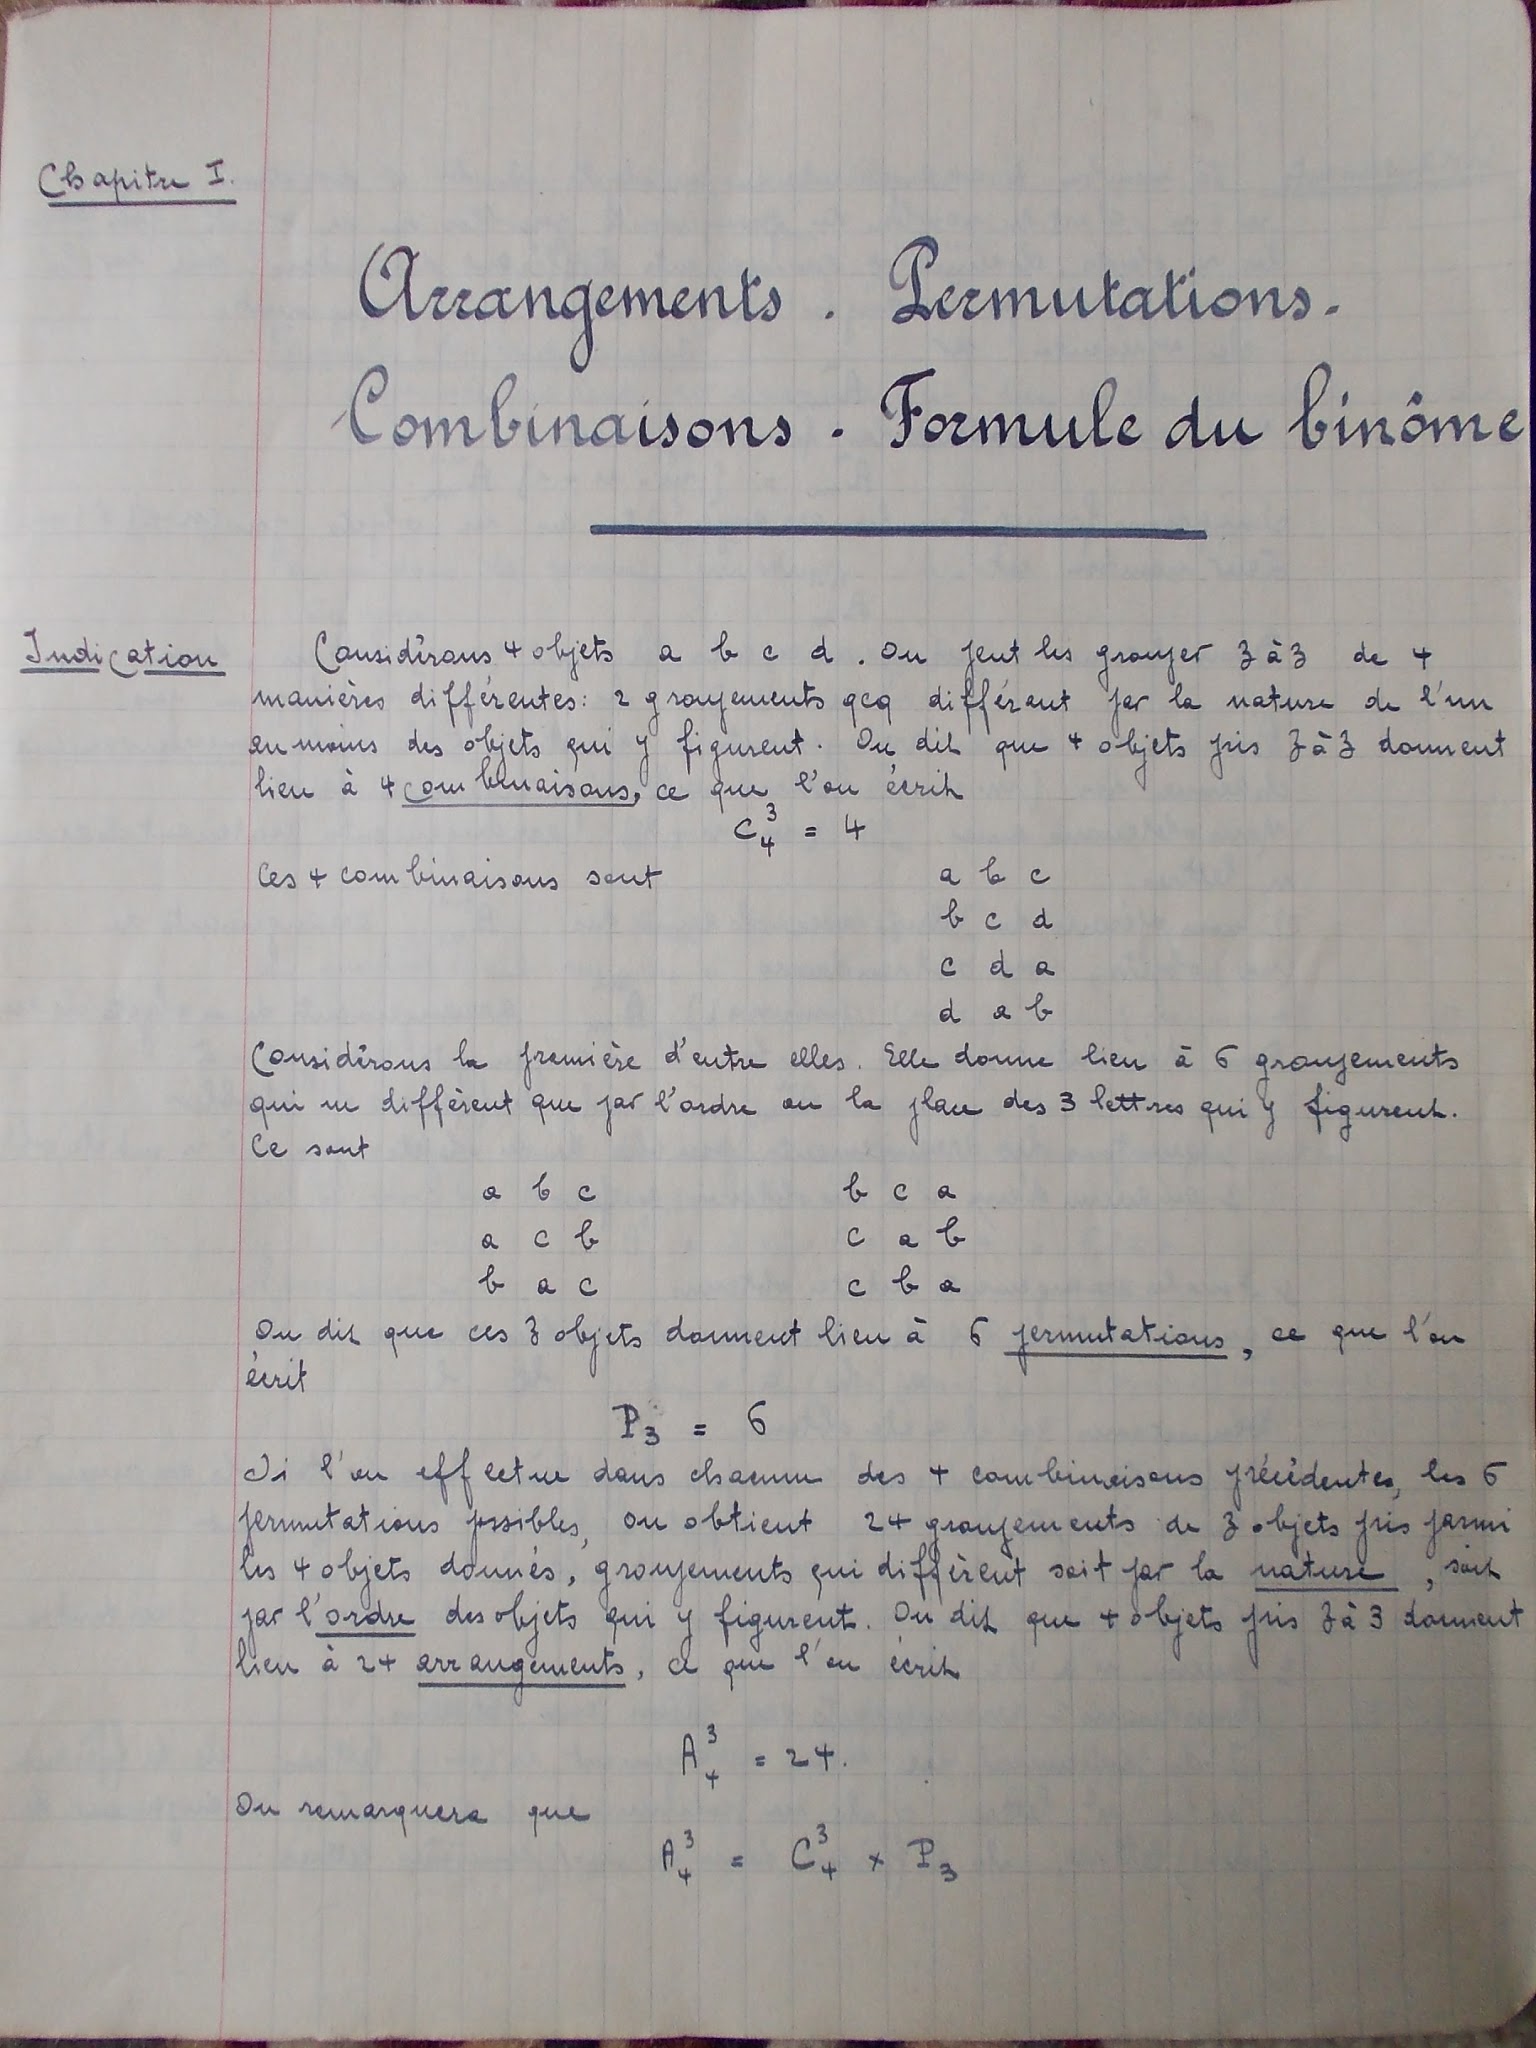 Chapitre I.
Arrangements. Permutations.
Combinaisons. Formule du binôme
Indication
Considérons 4 objets a b c d. On peut les grouper 3 à 3 de 4
manières différentes: 2 groupements qcq diffèrent par la nature de l'un
au moins des objets qui y figurent. On dit que 4 objets pris 3 à 3 donnent
lieu à 4 combinaisons, ce que l'on écrit
C₄³ = 4
Ces 4 combinaisons sont
a b c
b c d
c d a
d a b
Considérons la première d'entre elles. Elle donne lieu à 6 groupements
qui ne diffèrent que par l'ordre ou la place des 3 lettres qui y figurent.
Ce sont
a b c b c a
a c b c a b
b a c c b a
On dit que ces 3 objets donnent lieu à 6 permutations, ce que l'on
écrit
P₃ = 6
Si l'on effectue dans chacune des 4 combinaisons précédentes, les 6
permutations possibles, on obtient 24 groupements de 3 objets pris parmi
les 4 objets donnés, groupements qui diffèrent soit par la nature, soit
par l'ordre des objets qui y figurent. On dit que 4 objets pris 3 à 3 donnent
lieu à 24 arrangements, ce que l'on écrit
A₄³ = 24.
On remarquera que
A₄³ = C₄³ × P₃